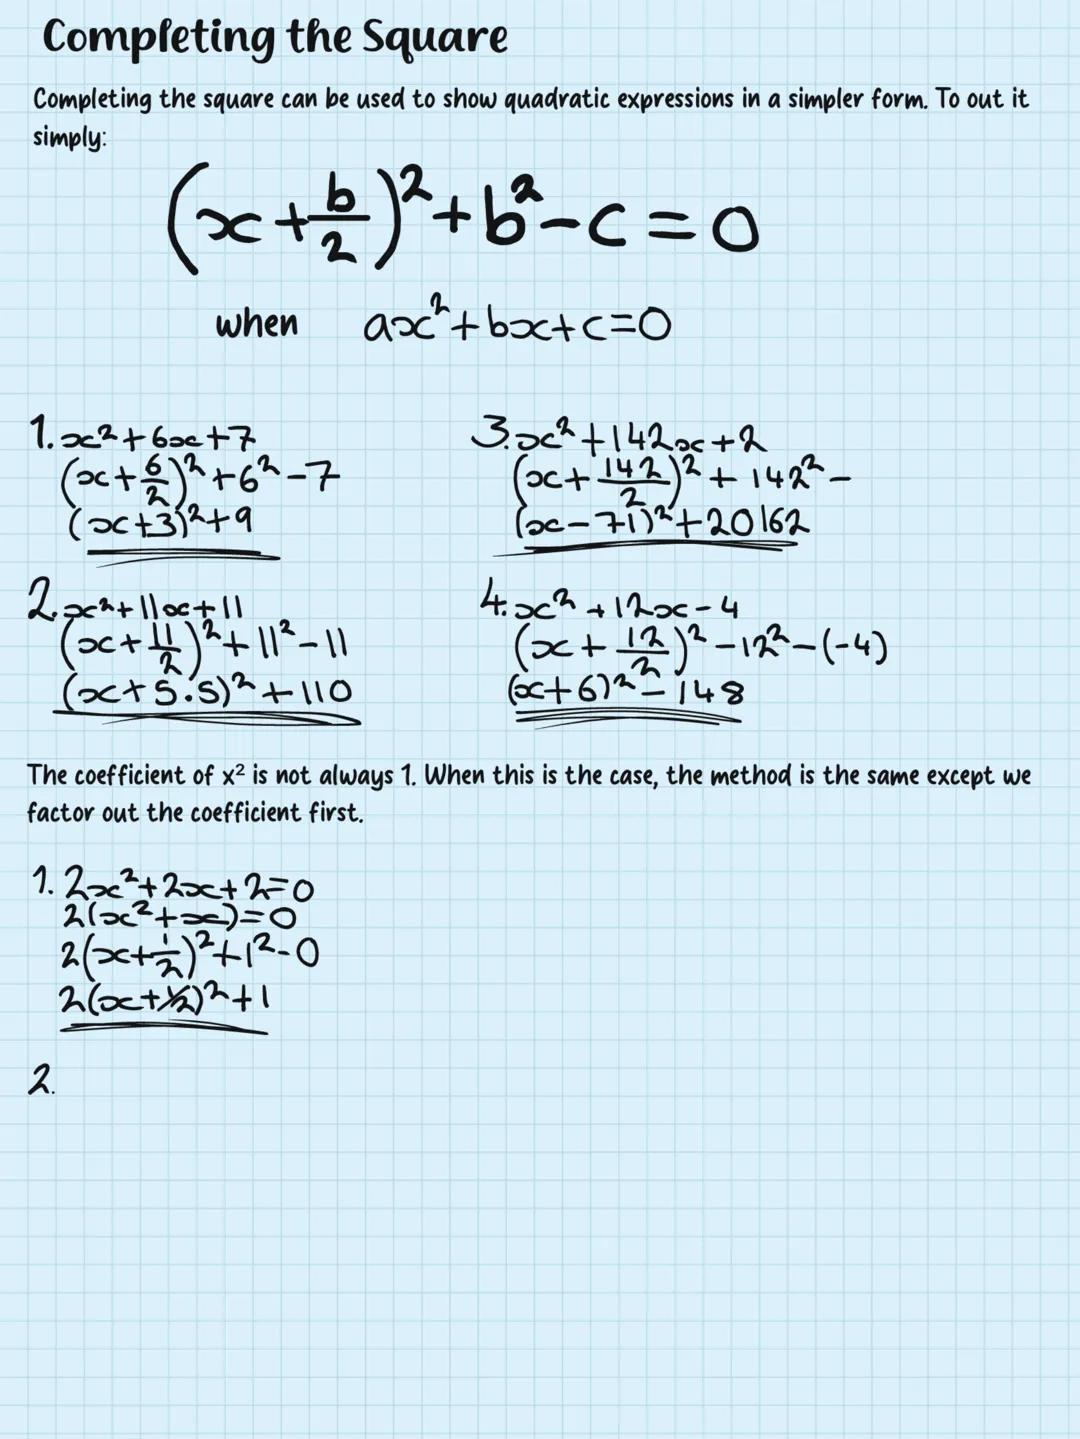 Completing the Square
Completing the square can be used to show quadratic expressions in a simpler form. To out it
simply:
(x+b/2)²+b²-c=0
when ax²+bx+c=0
1. x²+6x+7
(x+6/2)²+6²-7
(x+3)²+9
2. x²+11x+11
(x+11/2)²+11²-11
(x+5.5)²+110
3. x²+142x+2
(x+142/2)²+142²-
(x-71)²+20162
4. x²+12x-4
(x+12/2)²-12²-(-4)
(x+6)²-148
The coefficient of x² is not always 1. When this is the case, the method is the same except we
factor out the coefficient first.
1. 2x²+2x+2=0
2(x²+x)=0
2(x+1/2)²+1²-0
2(x+1/2)²+1
2.